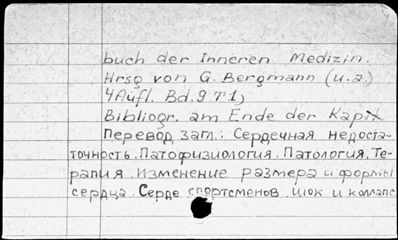 buch der Inneren Medizin.
Hrsg von G. Bergmann (u.a.)
4Aufl. Bd.9 T1,
Bibliogr. am Ende der Kapit.
Перевод заг.: Сердечная недоста-
точность. Патофизиология. Патология. Те-
рапия. Изменение размера и формы
сердца. Сердце спортсменов. Шок и коллапс